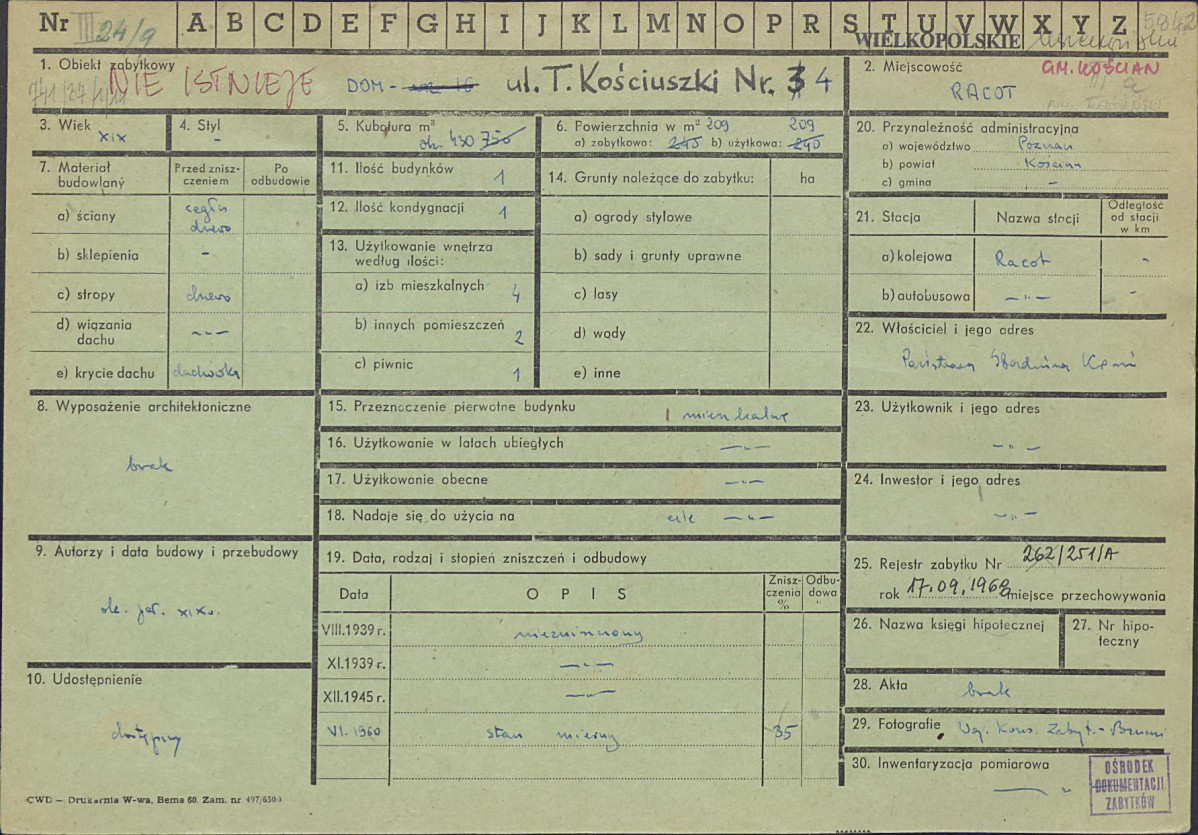 Nr III 24/9 A B C D E F G H I J K L M N O P R S T U V W X Y Z 5842
WIELKOPOLSKIE
1. Obiekt zabytkowy
NIE ISTNIEJE
DOM - ul. T. Kościuszki Nr. 4
2. Miejscowość
GM. KOŚCIAN
RACOT
3. Wiek
XIX
4. Styl
-
5. Kubatura m³
ok. 430 750
6. Powierzchnia w m² 209 209
a) zabytkowa: 240 b) użytkowa: 240
20. Przynależność administracyjna
a) województwo Poznań
b) powiat Kościan
c) gmina -
7. Materiał budowlany
Przed zniszczeniem
Po odbudowie
a) ściany cegła drewno
b) sklepienia -
c) stropy drewno
d) wiązania dachu -"-
e) krycie dachu dachówka
11. Ilość budynków 1
12. Ilość kondygnacji 1
13. Użytkowanie wnętrza według ilości:
a) izb mieszkalnych 4
b) innych pomieszczeń 2
c) piwnic 1
14. Grunty należące do zabytku: ha
a) ogrody stylowe
b) sady i grunty uprawne
c) lasy
d) wody
e) inne
21. Stacja
Nazwa stacji
Odległość od stacji w km
a) kolejowa Racot -
b) autobusowa -"- -
22. Właściciel i jego adres
Państwowa Stadnina Koni
8. Wyposażenie architektoniczne
brak
15. Przeznaczenie pierwotne budynku mieszkalne
16. Użytkowanie w latach ubiegłych -"-
17. Użytkowanie obecne -"-
18. Nadaje się do użycia na cele -"-
23. Użytkownik i jego adres
-"-
24. Inwestor i jego adres
-"-
9. Autorzy i data budowy i przebudowy
ok. poł. XIX w.
19. Data, rodzaj i stopień zniszczeń i odbudowy
Data
OPIS
Zniszczenia %
Odbudowa "
VIII.1939 r. niezniszczony
XI.1939 r. -"-
XII.1945 r. -"-
VI. 1960 stan mierny 35
25. Rejestr zabytku Nr 262/251/A
rok 17.09.1968 miejsce przechowywania
26. Nazwa księgi hipotecznej
27. Nr hipoteczny
10. Udostępnienie
dostępny
28. Akta brak
29. Fotografie Woj. Kons. Zabyt. -
30. Inwentaryzacja pomiarowa
- "
OŚRODEK
DOKUMENTACJI
ZABYTKÓW
CWD — Drukarnia W-wa, Bema 60. Zam. nr 497/6500